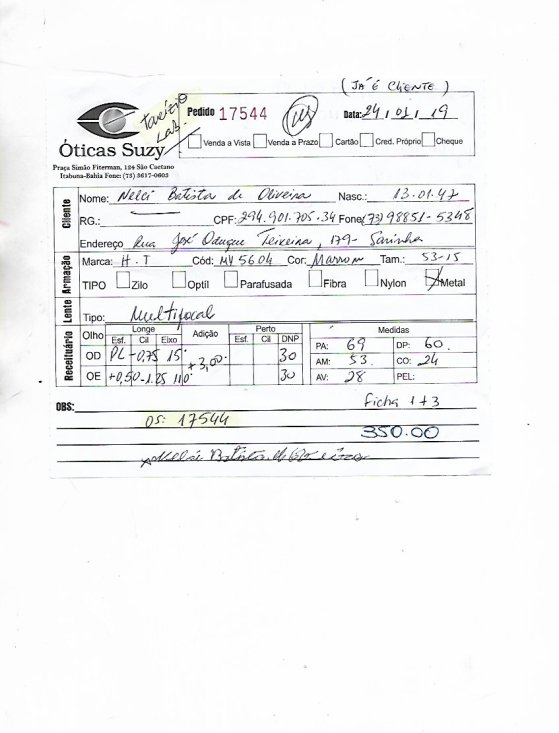 (JÁ É CLIENTE)
Tarcízio
Lab.
Pedido 17544
Data: 24/01/19
Óticas Suzy
Venda a Vista Venda a Prazo Cartão Cred. Próprio Cheque
Praça Simão Fiterman, 124 São Caetano
Itabuna-Bahia Fone: (73) 3617-0603
Cliente
Nome: Nelci Batista de Oliveira Nasc.: 13.01.47
RG.: CPF: 294.901.705-34 Fone (73) 98851-5348
Endereço Rua José Oduque Teixeira, 179-
Armação
Marca: H.T Cód: MY 5604 Cor: Marrom Tam.: 53-15
TIPO Zilo Optil Parafusada Fibra Nylon Metal
Lente
Tipo: Multifocal
Receituário
Olho Longe Adição Perto Medidas
Esf. Cil Eixo Esf. Cil DNP
OD PL -0,75 15° +3,00 30 PA: 69 DP: 60.
AM: 53 CO: 24
OE +0,50 -1.25 110° 30 AV: 28 PEL:
OBS: Ficha 1+3
OS: 17544
350.00
Nelci Batista de Oliveira